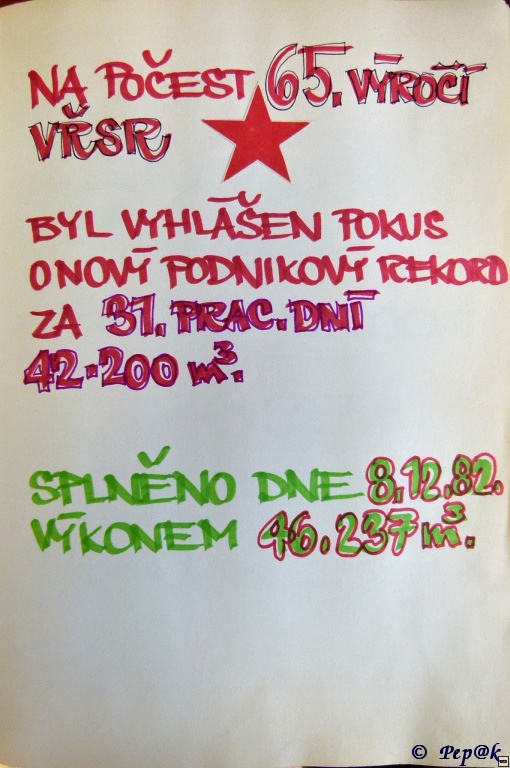 NA POČEST 65. VÝROČÍ
VŘSR
BYL VYHLÁŠEN POKUS
O NOVÝ PODNIKOVÝ REKORD
ZA 31. PRAC. DNÍ
42.200 m³.
SPLNĚNO DNE 8.12.82.
VÝKONEM 46.237 m³.
© Pep@k